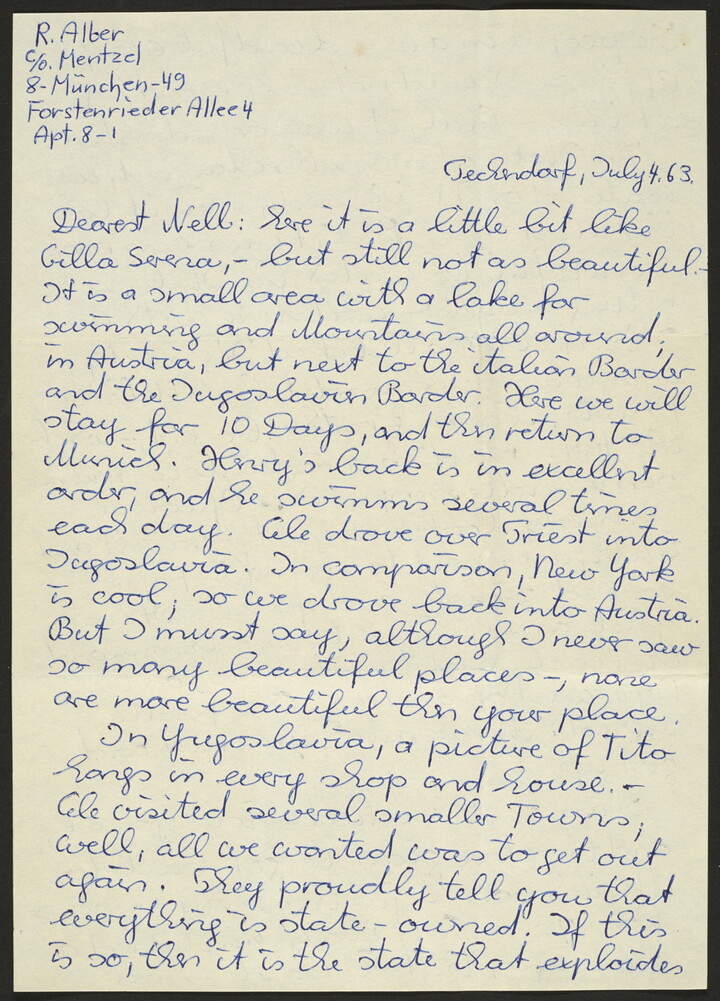 R. Alber
c/o. Mentzel
8-München-49
Forstenrieder Allee 4
Apt. 8-1
Techndorf, July 4. 63.
Dearest Nell: here it is a little bit like
Villa Serena, - but still not as beautiful. -
It is a small area with a lake for
swimming and Mountains all around;
in Austria, but next to the italian Border
and the Jugoslavien Border. Here we will
stay for 10 Days, and then return to
Munich. Henry's back is in excellent
order, and he swimms several times
each day. We drove over Triest into
Jugoslavia. In comparison, New York
is cool; so we drove back into Austria.
But I musst say, although I never saw
so many beautiful places -, none
are more beautiful then your place.
In Yugoslavia, a picture of Tito
hangs in every shop and house. -
We visited several smaller Towns;
well, all we wanted was to get out
again. They proudly tell you that
everything is state-owned. If this
is so, then it is the state that exploides